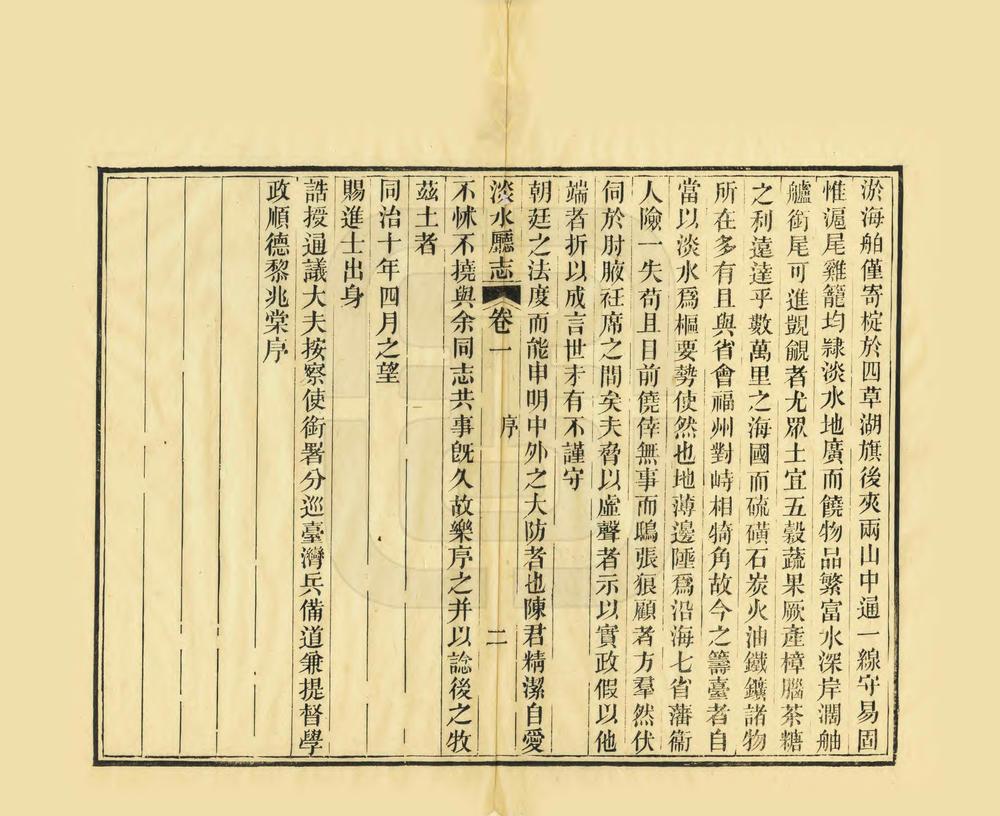 淤海舶僅寄椗於四草湖旗後夾兩山中通一線守易固
惟滬尾雞籠均隸淡水地廣而饒物品繁富水深岸濶舳
艫銜尾可進覬覦者尤眾土宜五穀蔬果厥產樟腦茶糖
之利遠達乎數萬里之海國而硫磺石炭火油鐵鑛諸物
所在多有且與省會福州對峙相犄角故今之籌臺者自
當以淡水爲樞要勢使然也地薄邊陲爲沿海七省藩衞
人險一失苟且目前僥倖無事而鴟張狼顧者方羣然伏
伺於肘腋衽席之間矣夫脅以虛聲者示以實政假以他
端者折以成言世未有不謹守
朝廷之法度而能申明中外之大防者也陳君精潔自愛
淡水廳志 卷一 序 二
不怵不撓與余同志共事旣久故樂序之并以諗後之牧
茲土者
同治十年四月之望
賜進士出身
誥授通議大夫按察使銜署分巡臺灣兵備道兼提督學
政順德黎兆棠序